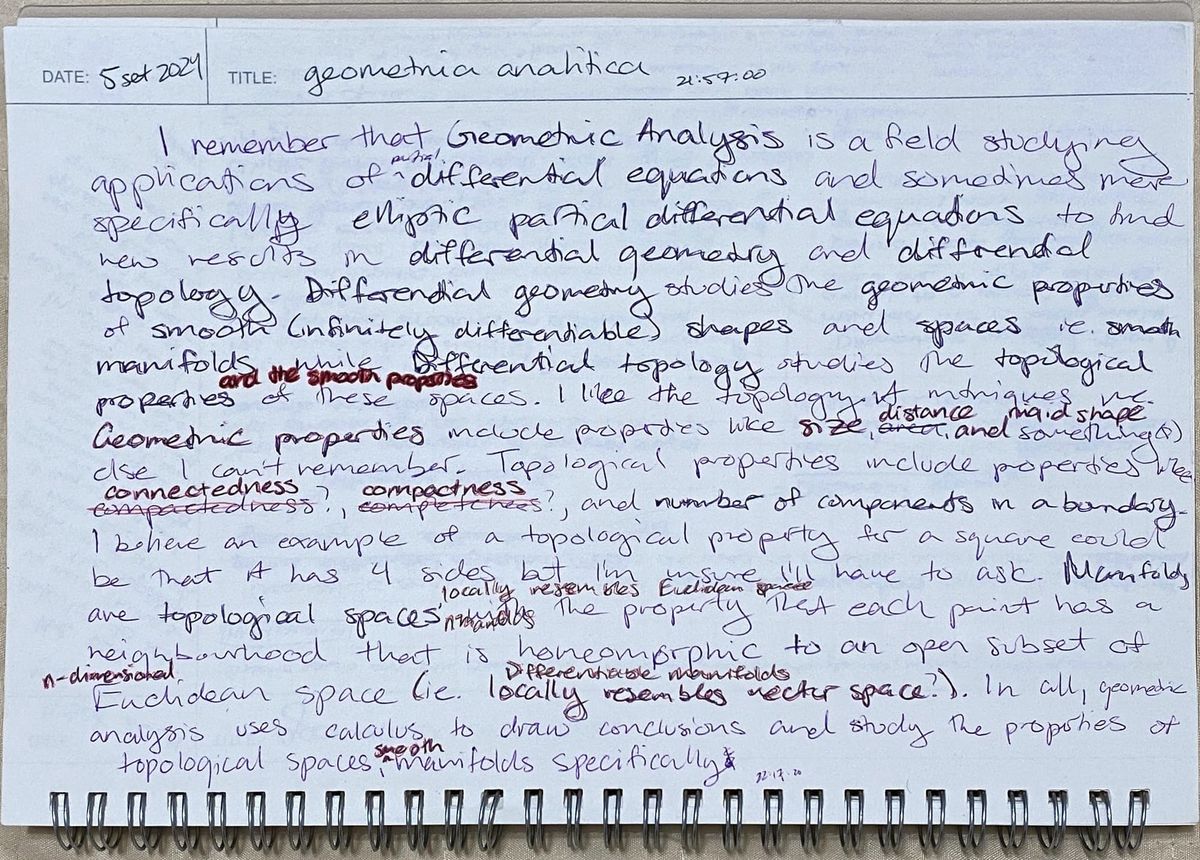 DATE: 5 set 2024 TITLE: geometria analitica 21:57:00
I remember that Geometric Analysis is a field studying
partial
applications of ^ differential equations and sometimes more
specifically elliptic partical differential equations to find
new results in differential geometry and differential
topology. Differential geometry studies the geometric properties
of smooth (infinitely differentiable) shapes and spaces ie. smooth
manifolds while Differential topology studies the topological
and the smooth properties
properties of these spaces. I like the topology it intrigues me.
distance, rigid shape
Geometric properties include properties like size, area, and something(s)
else I can't remember. Topological properties include properties like
connectedness compactness
compactedness?, completenes?, and number of components in a boundary.
I believe an example of a topological property for a square could
be that it has 4 sides but I'm unsure I'll have to ask. Manifolds
locally resembles Euclidean space
are topological spaces with the property that each point has a
n-manifolds
neighbourhood that is homeomorphic to an open subset of
n-dimensional Differentiable manifolds
Euclidean space (ie. locally resembles vector space?). In all, geometric
analysis uses calculus to draw conclusions and study the properties of
smooth
topological spaces, ^ manifolds specifically.
22:17:20